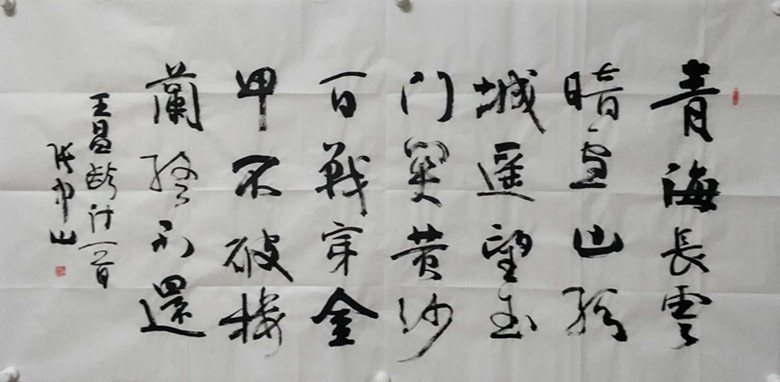 青海長雲
暗雪山孤
城遥望玉
门关黄沙
百戰穿金
甲不破楼
蘭終不還
王昌龄诗一首
张山